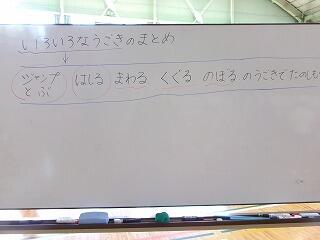 いろいろなうごきのまとめ
ジャンプ はしる まわる くぐる のぼる のうごきで たのしも
とぶ